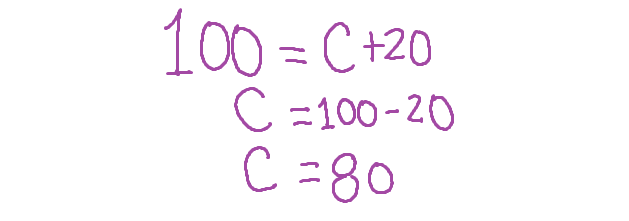 100 = C+20
C =100-20
C =80